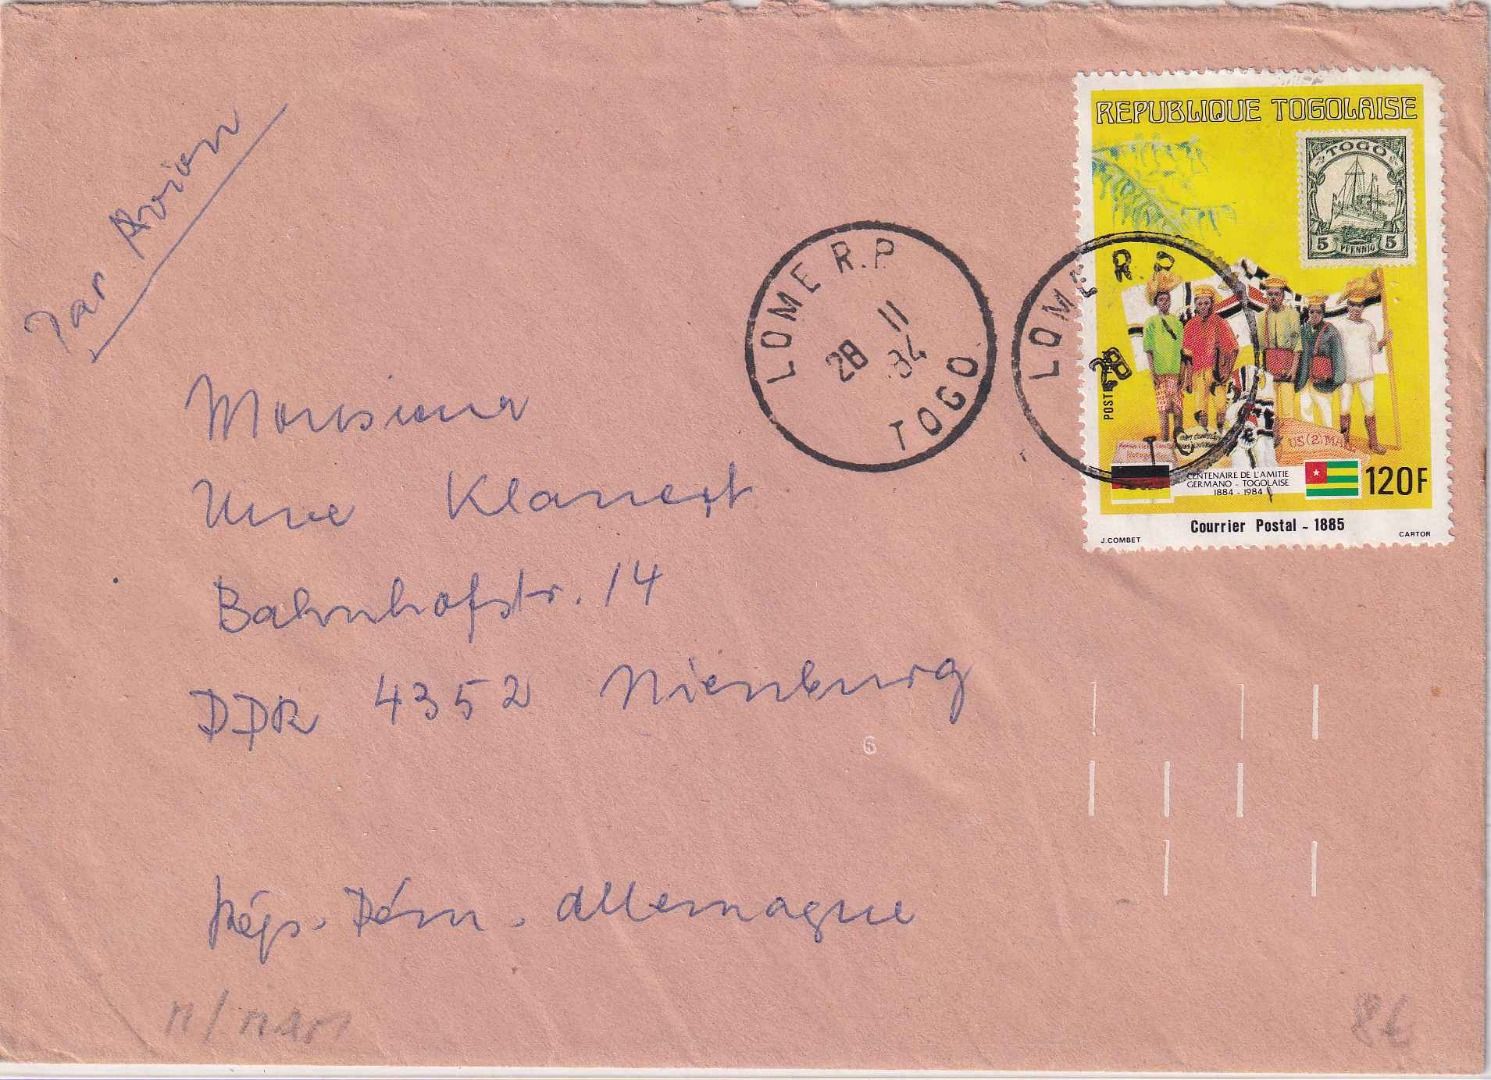 Par Avion
REPUBLIQUE TOGOLAISE
TOGO
5 PFENNIG 5
LOME R.P
28 11
84
TOGO
LOME R.P
28
TO
POSTE
US (2) MA
CENTENAIRE DE L'AMITIE
GERMANO - TOGOLAISE
1884 - 1984
120F
Courrier Postal - 1885
J. COMBET
CARTOR
Monsieur
Uwe Klanert
Bahnhofstr. 14
DDR 4352 Nienburg
6
Rép. Dém. Allemagne